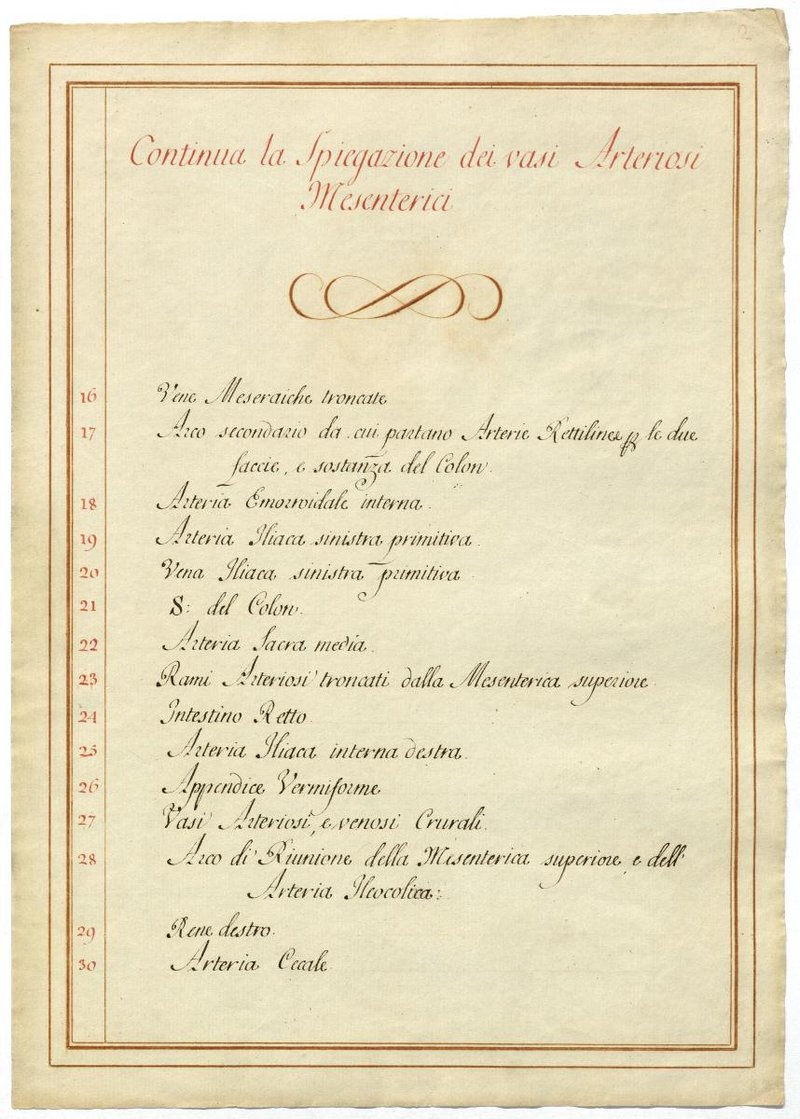 2
Continua la Spiegazione dei vasi Arteriosi
Mesenterici
16 Vene Meseraiche troncate
17 Arco secondario da cui partano Arterie Rettilinee p le due
faccie, e sostanza del Colon.
18 Arteria Emorroidale interna.
19 Arteria Iliaca sinistra primitiva.
20 Vena Iliaca sinistra primitiva
21 S: del Colon.
22 Arteria Sacra media.
23 Rami Arteriosi troncati dalla Mesenterica superiore.
24 Intestino Retto.
25 Arteria Iliaca interna destra.
26 Appendice Vermiforme
27 Vasi Arteriosi, e venosi Crurali.
28 Arco di Riunione della Mesenterica superiore e dell'
Arteria Ileocolica:
29 Rene destro.
30 Arteria Cecale.